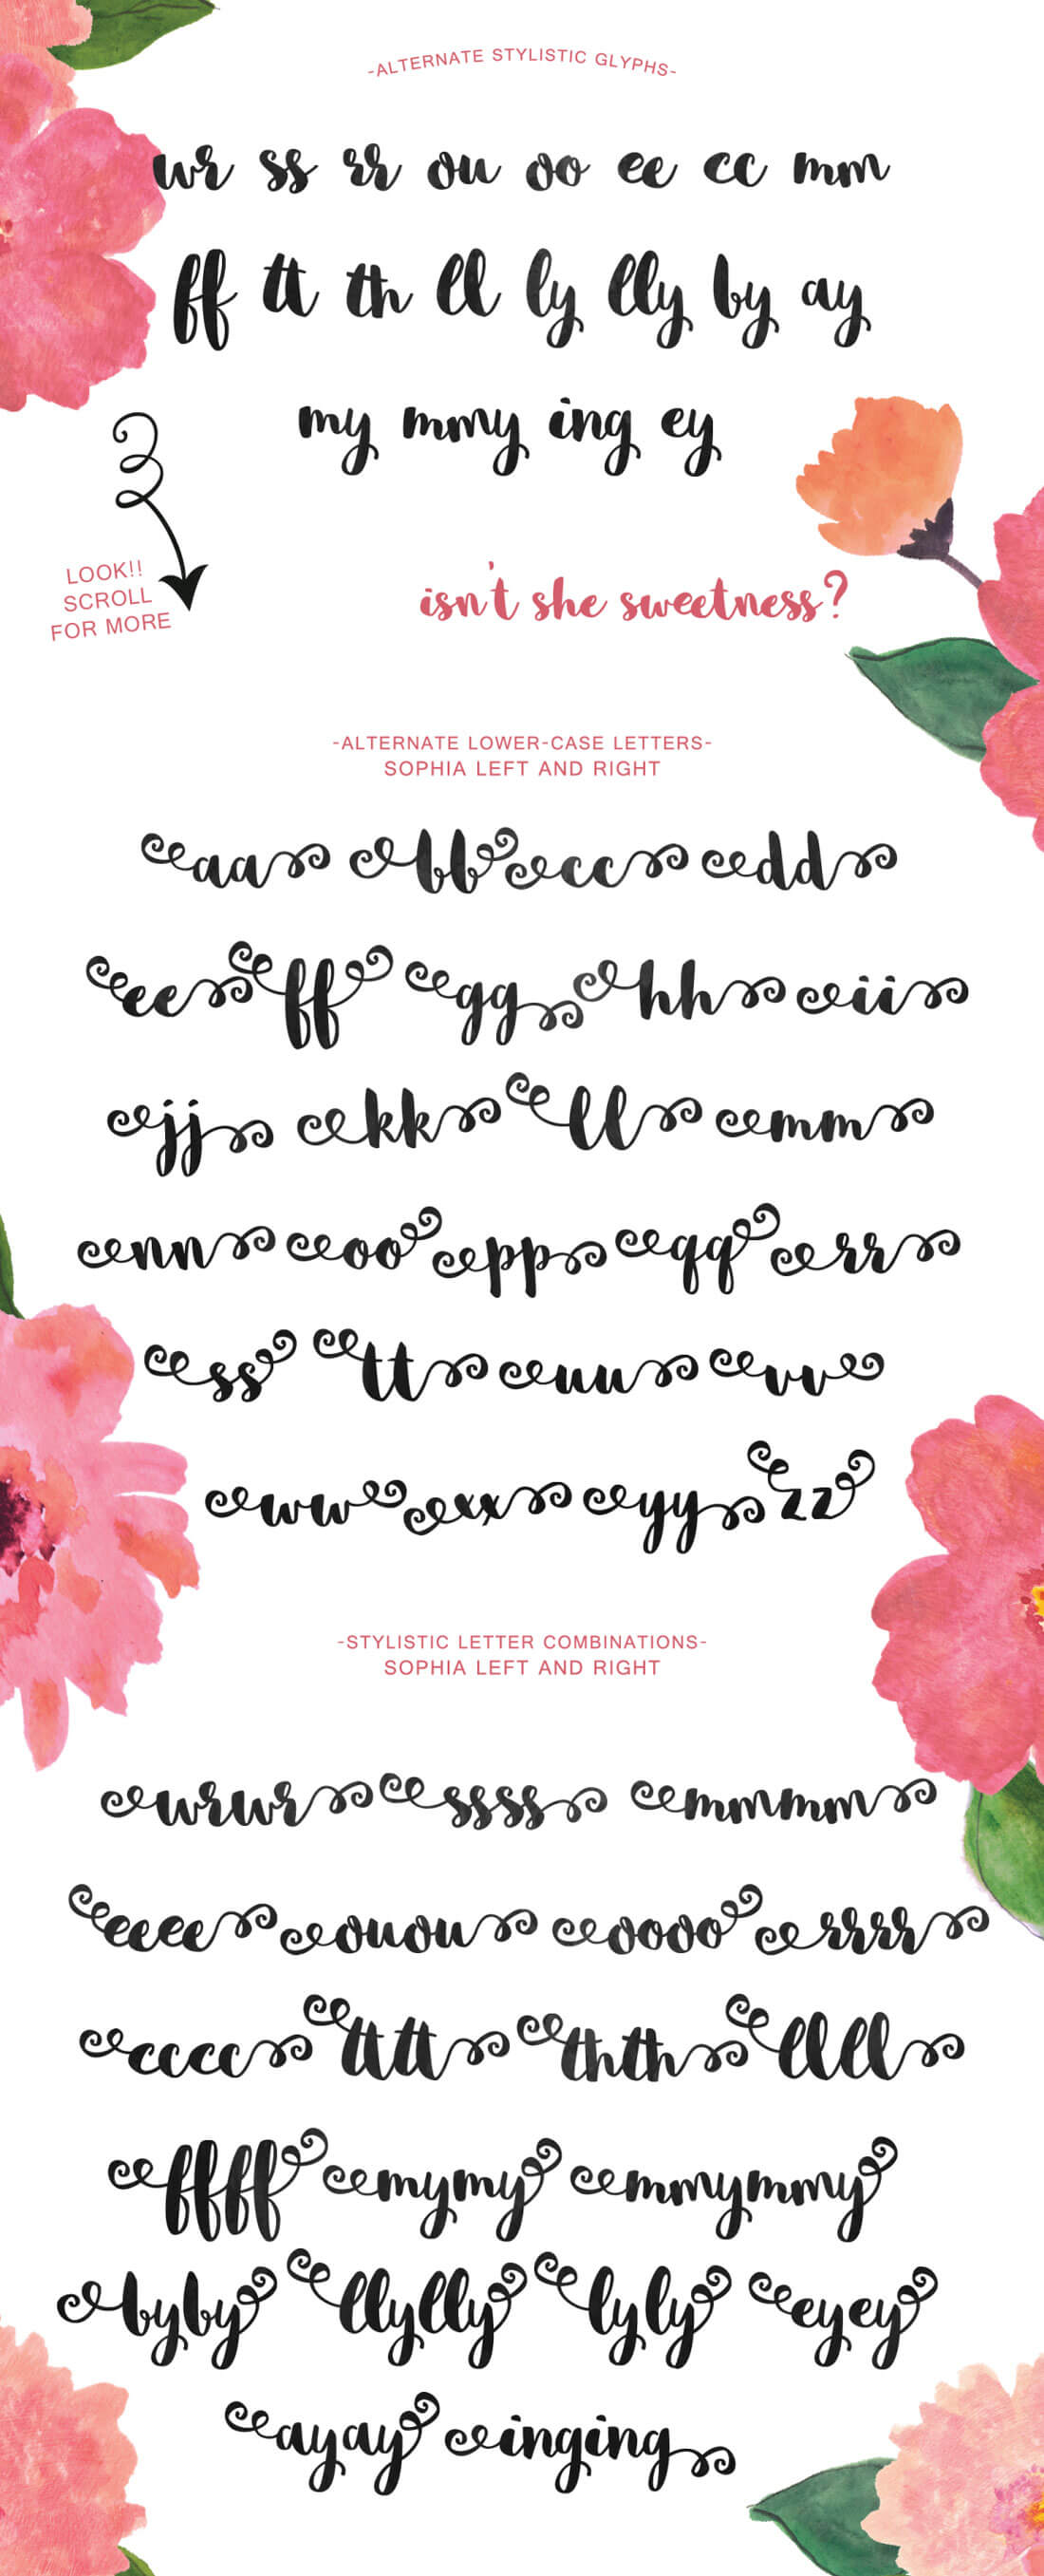 -ALTERNATE STYLISTIC GLYPHS-
wr ss rr ou oo ee cc mm
ff tt th ll ly lly by ay
my mmy ing ey
LOOK!!
SCROLL
FOR MORE
isn't she sweetness?
-ALTERNATE LOWER-CASE LETTERS-
SOPHIA LEFT AND RIGHT
aa bb cc dd
ee ff gg hh ii
jj kk ll mm
nn oo pp qq rr
ss tt uu vv
ww xx yy zz
-STYLISTIC LETTER COMBINATIONS-
SOPHIA LEFT AND RIGHT
wrwr ssss mmmm
eeee ouou oooo rrrr
cccc tttt thth llll
ffff mymy mmymmy
byby llylly lyly eyey
ayay inging